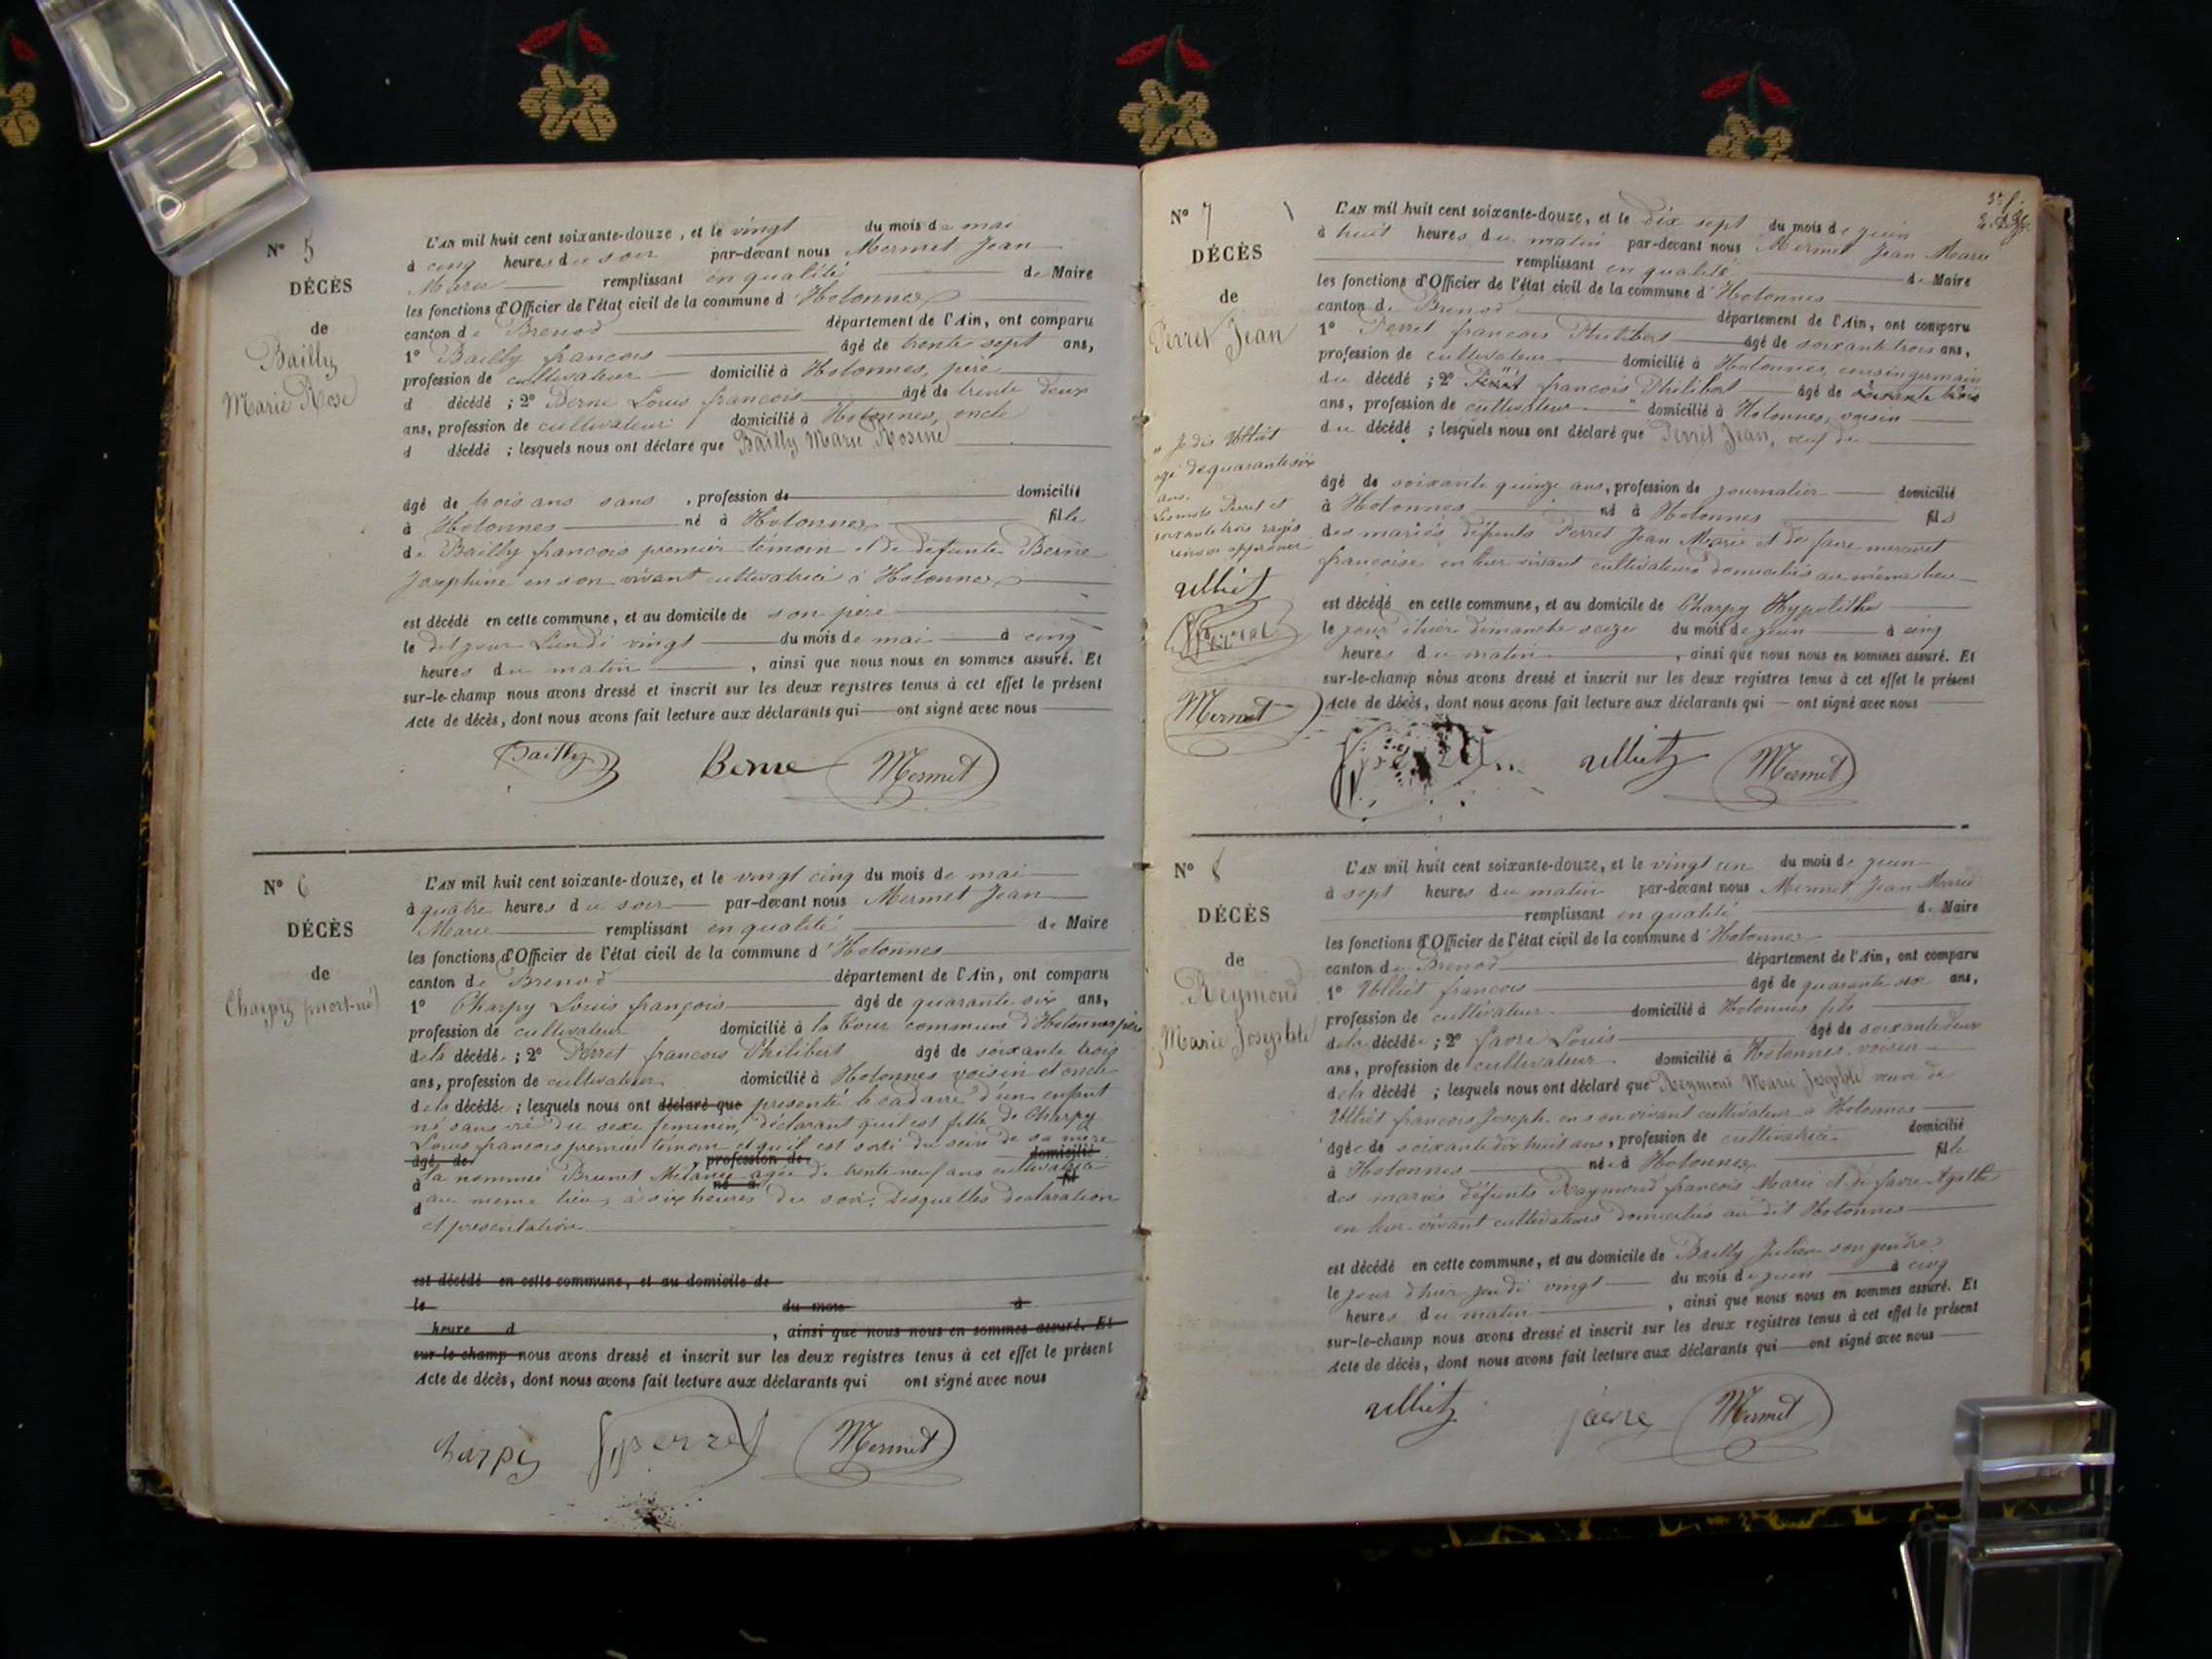 N° 5
DÉCÈS
de
Bailly
Marie Rose
L'AN mil huit cent soixante-douze, et le vingt du mois de mai
à cinq heures du soir par-devant nous Mermet Jean
Marie remplissant en qualité de Maire
les fonctions d'Officier de l'état civil de la commune d'Hotonnes
canton de Brenod département de l'Ain, ont comparu
1° Bailly francois âgé de trente sept ans,
profession de cultivateur domicilié à Hotonnes, père
d décédé ; 2° Berne Louis francois âgé de trente deux
ans, profession de cultivateur domicilié à Hotonnes, oncle
d décédé ; lesquels nous ont déclaré que Bailly Marie Rosine
âgé de trois ans sans , profession de domicilié
à Hotonnes né à Hotonnes fille
de Bailly francois premier témoin et de defunte Berne
Josephine en son vivant cultivatrice à Hotonnes
est décédé en cette commune, et au domicile de son père
le dit jour Lundi vingt du mois de mai à cinq
heures du matin , ainsi que nous nous en sommes assuré. Et
sur-le-champ nous avons dressé et inscrit sur les deux registres tenus à cet effet le présent
Acte de décès, dont nous avons fait lecture aux déclarants qui ont signé avec nous
Bailly Berne Mermet
N° 6
DÉCÈS
de
Charpy (mort-né)
L'AN mil huit cent soixante-douze, et le vingt cinq du mois de mai
à quatre heures du soir par-devant nous Mermet Jean
Marie remplissant en qualité de Maire
les fonctions d'Officier de l'état civil de la commune d'Hotonnes
canton de Brenod département de l'Ain, ont comparu
1° Charpy Louis françois âgé de quarante six ans,
profession de cultivateur domicilié à la Cour commune d'Hotonnes père
de la décédée ; 2° Perret francois Philibert âgé de soixante trois
ans, profession de cultivateur domicilié à Hotonnes voisin et oncle
de la décédée ; lesquels nous ont déclaré que presenté le cadavre d'un enfant
né sans vie du sexe feminin, déclarant qu'il est fille de Charpy
Louis francois premier témoin et qu'il est sorti du sein de sa mère
âgé de profession de domicilié
la nommée Brunet Mélanie agée de trente neuf ans cultivatrice
à né à fil
au meme lieu, à six heures du soir. Desquelles declaration
d
et presentation
est décédé en cette commune, et au domicile de
le du mois à
heure d , ainsi que nous nous en sommes assuré. Et
sur-le-champ nous avons dressé et inscrit sur les deux registres tenus à cet effet le présent
Acte de décès, dont nous avons fait lecture aux déclarants qui ont signé avec nous
Charpy perret Mermet
N° 7
DÉCÈS
de
Perret Jean
L'AN mil huit cent soixante-douze, et le dix sept du mois de juin
à huit heures du matin par-devant nous Mermet Jean Marie
remplissant en qualité de Maire
les fonctions d'Officier de l'état civil de la commune d'Hotonnes
canton de Brenod département de l'Ain, ont comparu
1° Perret francois Philibert âgé de soixante trois ans,
profession de cultivateur domicilié à Hotonnes, cousin germain
du décédé ; 2° Perret francois Philibert âgé de soixante trois
ans, profession de cultivateur domicilié à Hotonnes, voisin
du décédé ; lesquels nous ont déclaré que Perret Jean, veuf de
Je dis Ulliet
agé de quarante six
ans.
Les mots Perret et
soixante trois rayés
âgé de soixante quinze ans, profession de journalier domicilié
à Hotonnes né à Hotonnes fils
des mariés défunts Perret Jean Marie et de favre
francoise en leur vivant cultivateurs domiciliés au même lieu
ulliet
Perret
Mermet
est décédé en cette commune, et au domicile de Charpy Hypolithe
le jour d'hier dimanche seize du mois de juin à cinq
heures du matin , ainsi que nous nous en sommes assuré. Et
sur-le-champ nous avons dressé et inscrit sur les deux registres tenus à cet effet le présent
Acte de décès, dont nous avons fait lecture aux déclarants qui ont signé avec nous
ulliet Mermet
N° 8
DÉCÈS
de
Reymond
Marie Josephte
L'AN mil huit cent soixante-douze, et le vingt un du mois de juin
à sept heures du matin par-devant nous Mermet Jean Marie
remplissant en qualité de Maire
les fonctions d'Officier de l'état civil de la commune d'Hotonnes
canton de Brenod département de l'Ain, ont comparu
1° Ulliet francois âgé de quarante six ans,
profession de cultivateur domicilié à Hotonnes fils
de la décédée ; 2° favre Louis âgé de soixante deux
ans, profession de cultivateur domicilié à Hotonnes, voisin
de la décédé ; lesquels nous ont déclaré que Reymond Marie Josephte veuve de
Ulliet francois Joseph en son vivant cultivateur à Hotonnes
âgée de soixante dix huit ans, profession de cultivatrice domicilié
à Hotonnes née à Hotonnes fille
des mariés défunts Raymond francois Marie et de favre Agathe
en leur vivant cultivateurs domiciliés au dit Hotonnes
est décédé en cette commune, et au domicile de Bailly Julien son gendre
le jour d'hier jeudi vingt du mois de juin à cinq
heures du matin , ainsi que nous nous en sommes assuré. Et
sur-le-champ nous avons dressé et inscrit sur les deux registres tenus à cet effet le présent
Acte de décès, dont nous avons fait lecture aux déclarants qui ont signé avec nous
ulliet favre Mermet